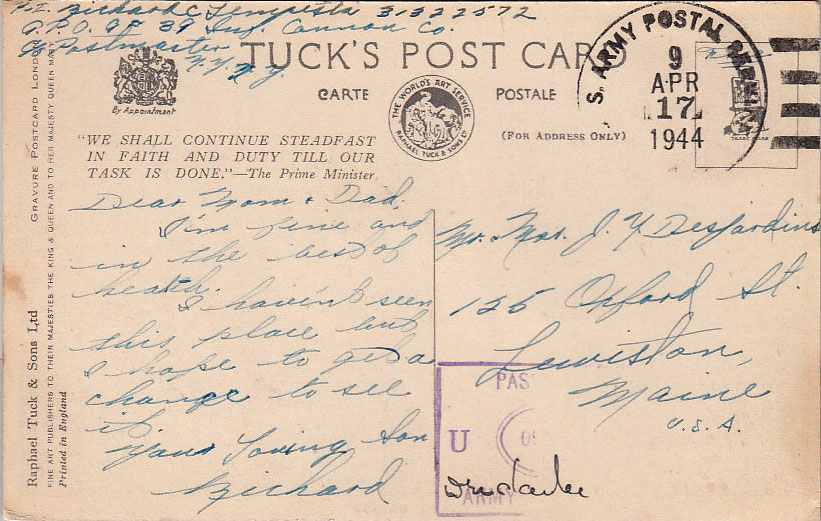 Richard C Tempesta 31322572
A.P.O. 39 Inf. Cannon Co.
℅ Postmaster
N.Y. N.Y.
TUCK'S POST CARD
CARTE POSTALE
By Appointment
THE WORLD'S ART SERVICE
RAPHAEL TUCK & SONS LD
(FOR ADDRESS ONLY)
U.S. ARMY POSTAL SERVICE
9
APR
17
1944
"WE SHALL CONTINUE STEADFAST
IN FAITH AND DUTY TILL OUR
TASK IS DONE."—The Prime Minister.
Dear Mom & Dad,
I'm fine and
in the best of
health.
I haven't seen
this place but
I hope to get a
chance to see
it.
Your Loving Son
Richard
Mr. & Mrs. J. Y. Desjardins
125 Oxford St.
Lewiston,
Maine
U.S.A.
PAS
U
ARMY
Raphael Tuck & Sons Ltd
GRAVURE POSTCARD LONDON
FINE ART PUBLISHERS TO THEIR MAJESTIES THE KING & QUEEN AND TO HER MAJESTY QUEEN MARY
Printed in England